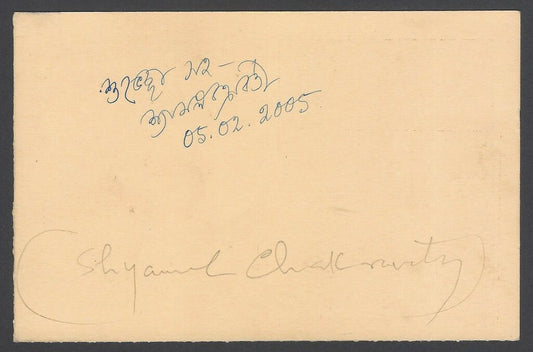 শুভেচ্ছা সহ –
শ্যামল চক্রবর্তী
05.02.2005
(Shyamal Chakravarty)